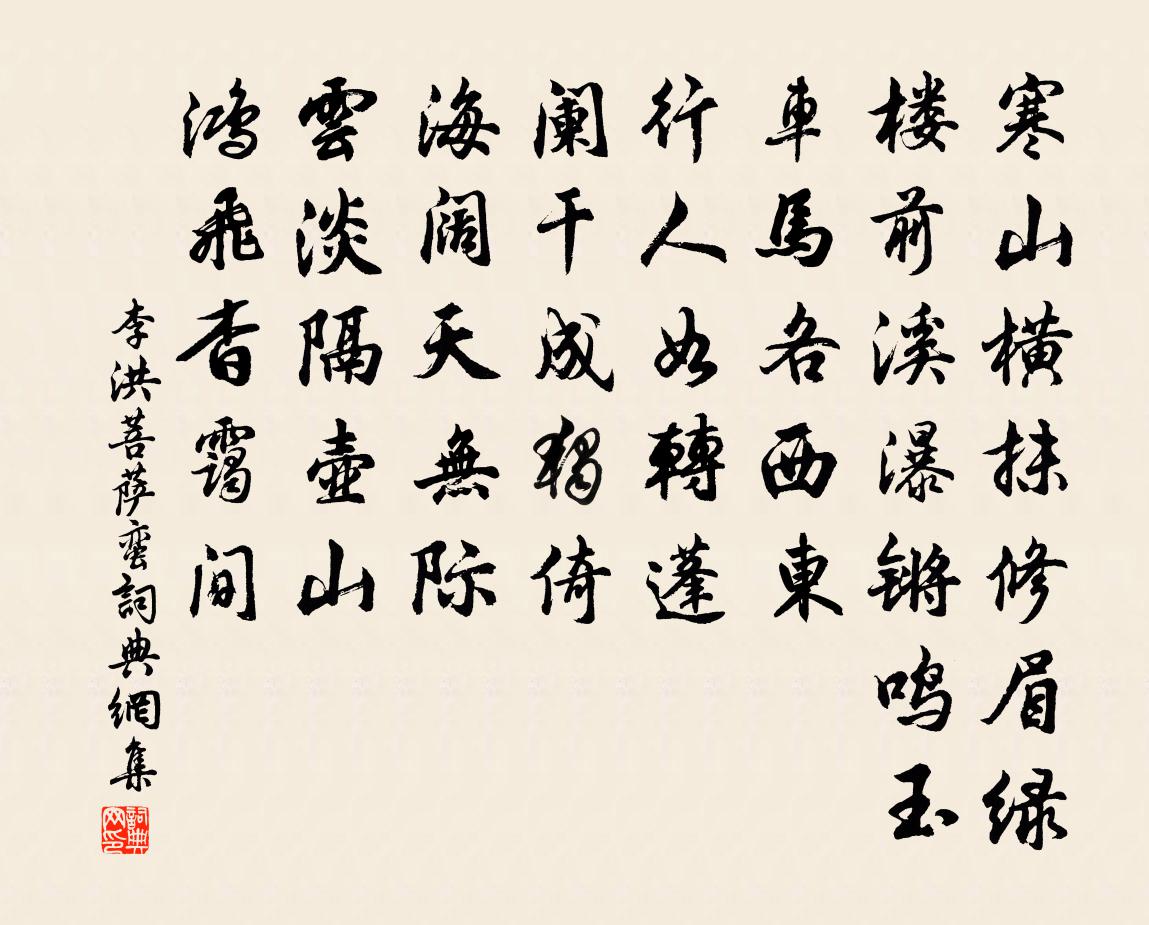 寒山橫抹修眉绿
楼前溪瀑锵鸣玉
車馬各西東
行人如轉蓬
阑干成独倚
海阔天無际
雲淡隔壺山
鸿飛杳靄间
李洪菩萨蛮詞典網集
詞典网印